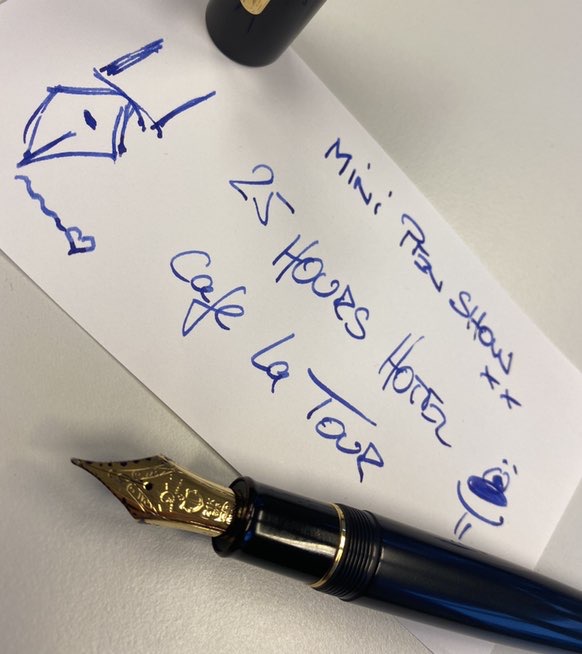 MiNi PEN SHOW xx
25 HOURS HOTEL
Cafe La TOUR